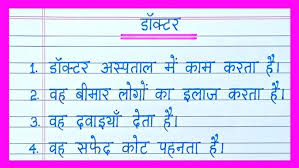 डॉक्टर
1. डॉक्टर अस्पताल में काम करता है।
2. वह बीमार लोगों का इलाज करता है।
3. वह दवाइयाँ देता है।
4. वह सफेद कोट पहनता है।